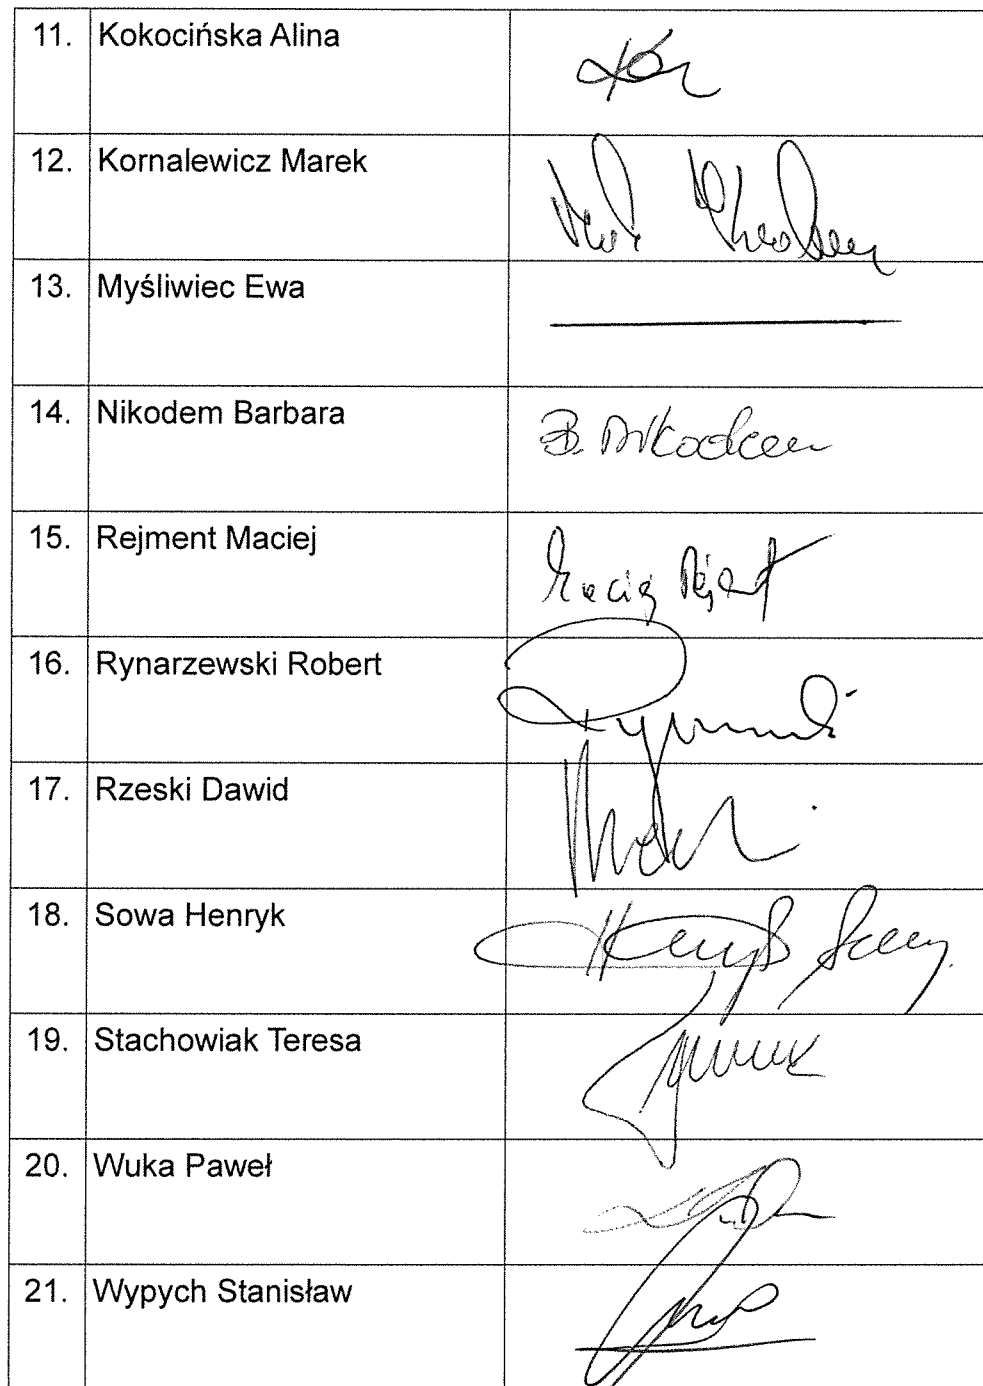 11. Kokocińska Alina
12. Kornalewicz Marek
13. Myśliwiec Ewa
14. Nikodem Barbara B. Nikodem
15. Rejment Maciej Maciej
16. Rynarzewski Robert
17. Rzeski Dawid
18. Sowa Henryk Henryk Sowa
19. Stachowiak Teresa
20. Wuka Paweł
21. Wypych Stanisław